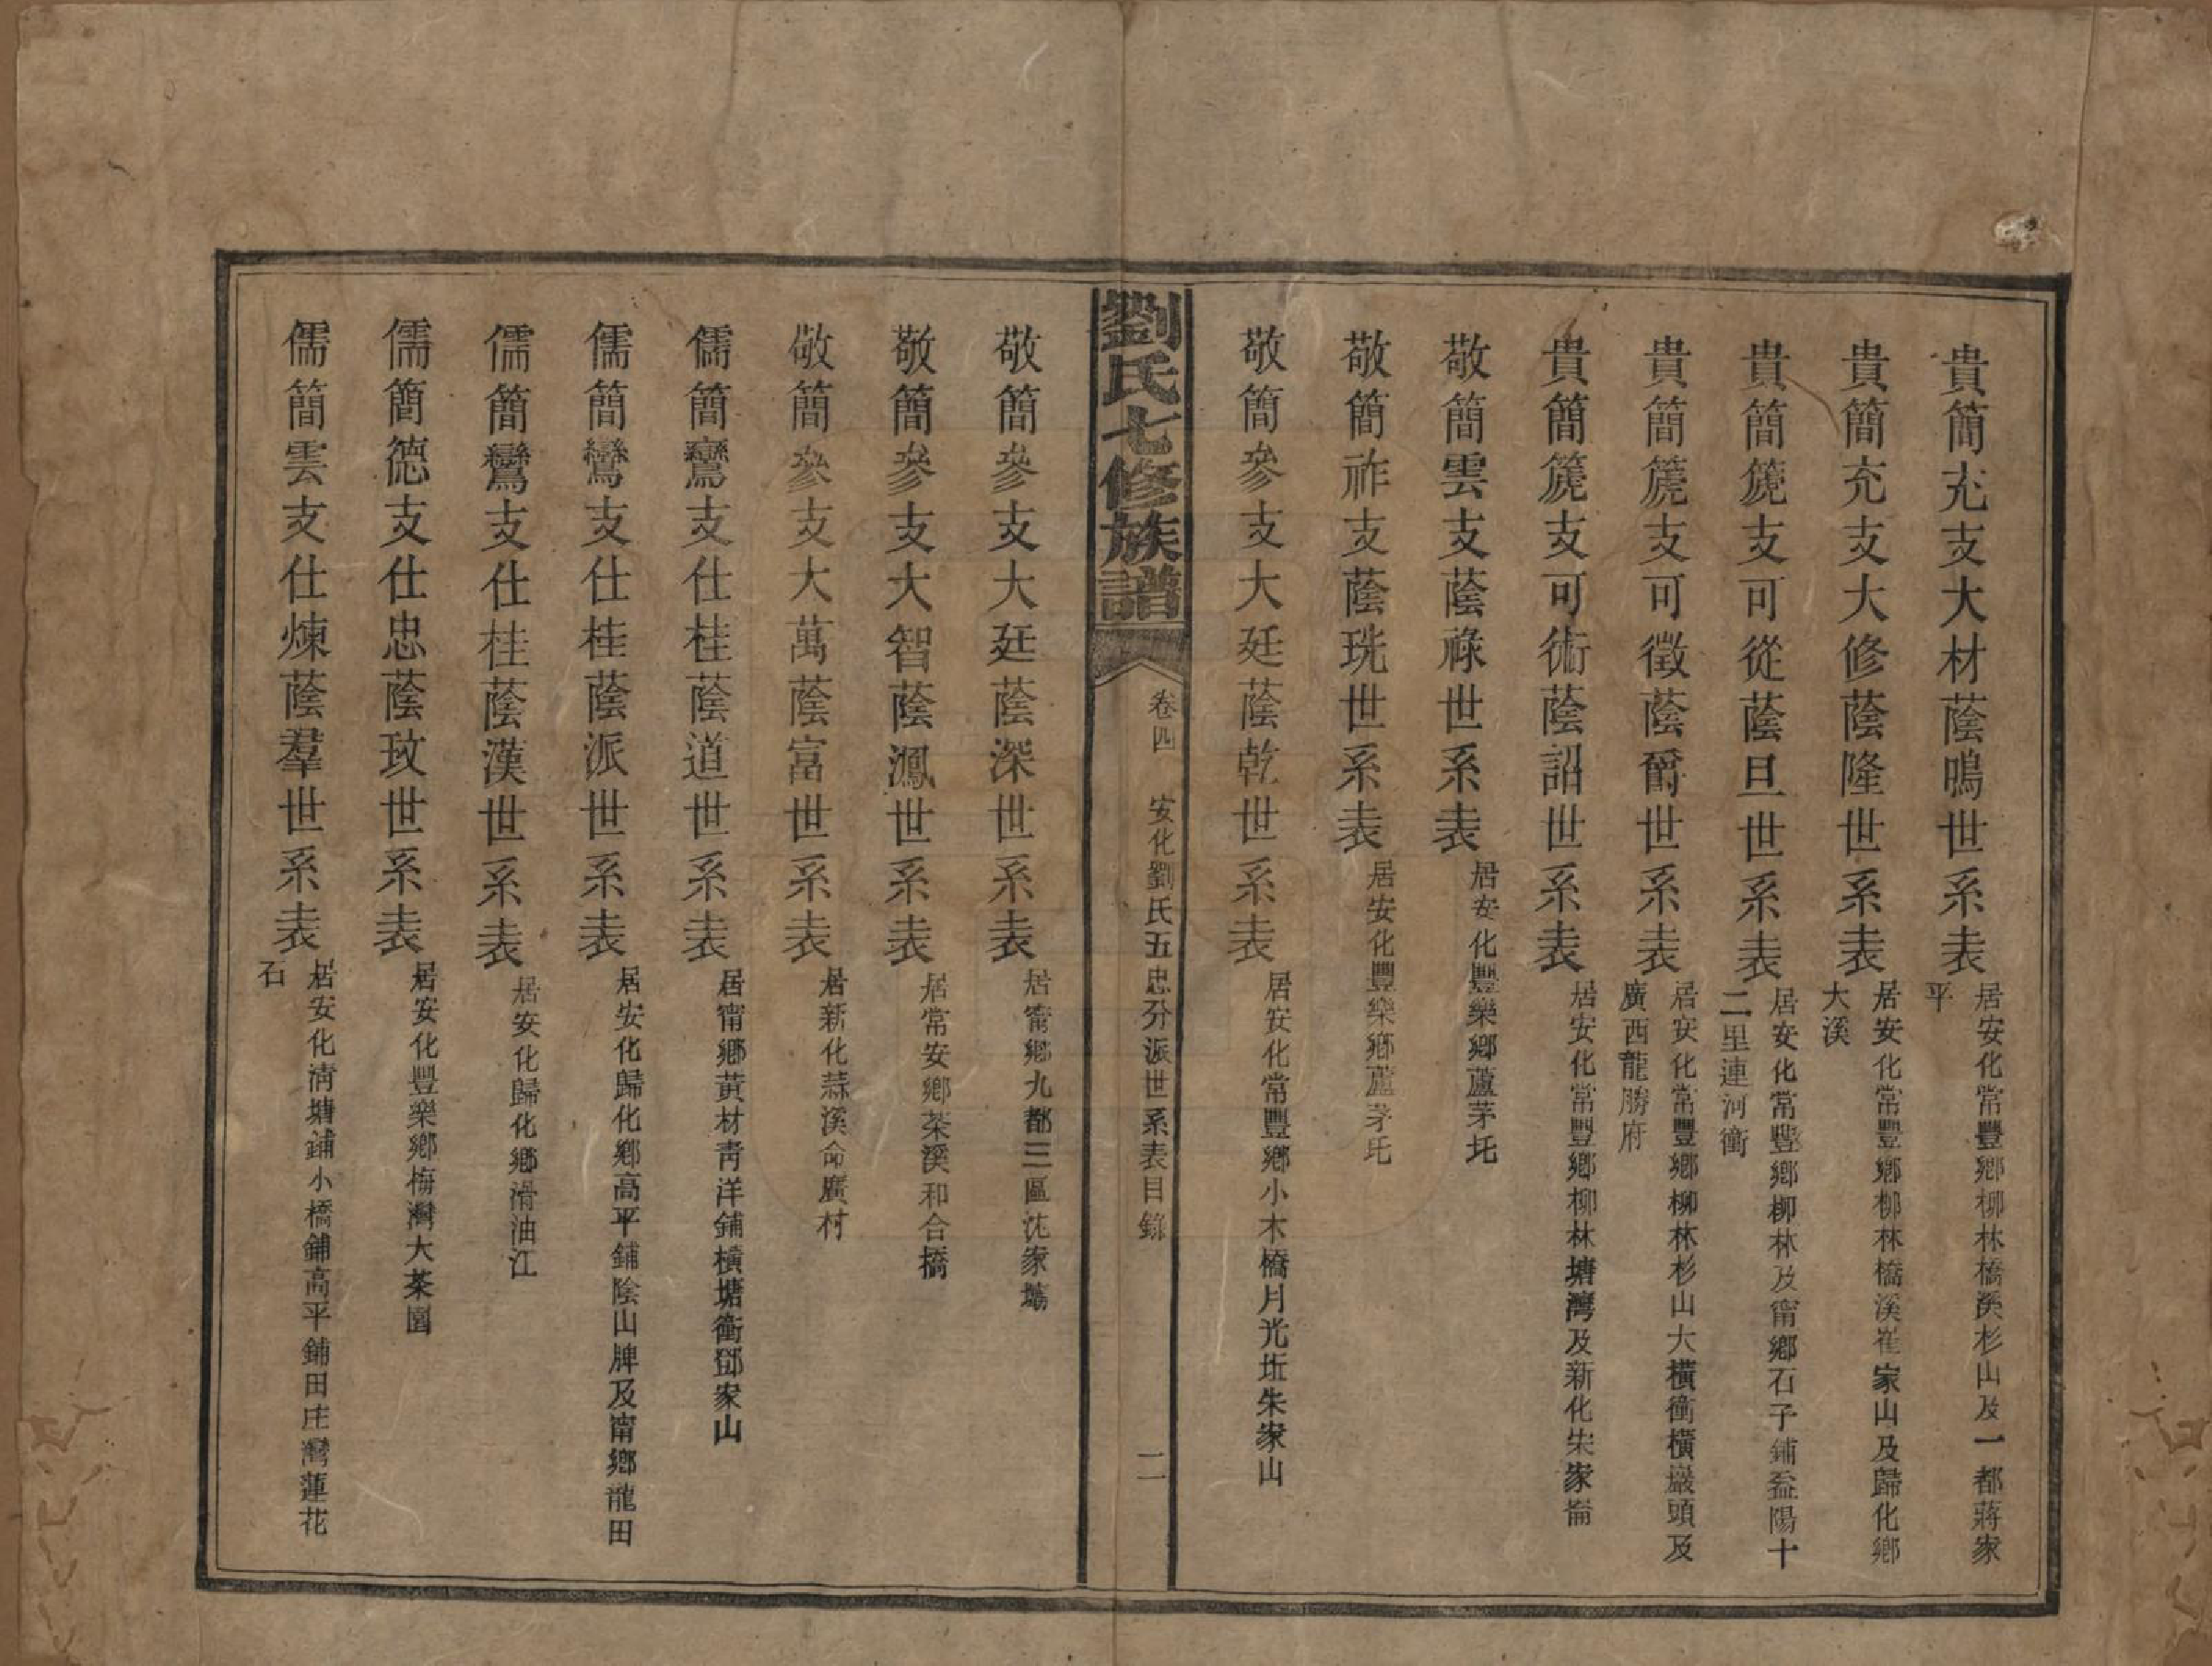 貴簡充支大材蔭鳴世系表居安化常豐鄉柳林橋溪杉山及一都蔣家平
貴簡充支大修蔭隆世系表居安化常豐鄉柳林橋溪崔家山及歸化鄉大溪
貴簡簏支可從蔭旦世系表居安化常豐鄉柳林及甯鄉石子鋪益陽十二里連河衝
貴簡簏支可徵蔭爵世系表居安化常豐鄉柳林杉山大橫衝橫巖頭及廣西龍勝府
貴簡簏支可術蔭詔世系表居安化常豐鄉柳林塘灣及新化朱家崙
敬簡雲支蔭祿世系表居安化豐樂鄉蘆茅圫
敬簡祚支蔭珗世系表居安化豐樂鄉蘆茅圫
敬簡參支大廷蔭乾世系表居安化常豐鄉小木橋月光坵朱家山
劉氏七修族譜 卷四 安化劉氏五忠分派世系表目錄 二
敬簡參支大廷蔭深世系表居甯鄉九都三區沈家塅
敬簡參支大智蔭鳳世系表居常安鄉茶溪和合橋
敬簡參支大萬蔭富世系表居新化蒜溪命廣村
儒簡鸞支仕桂蔭道世系表居甯鄉黃材靑洋鋪橫塘衝鄧家山
儒簡鸞支仕桂蔭派世系表居安化歸化鄉高平鋪陰山牌及甯鄉龍田
儒簡鸞支仕桂蔭漢世系表居安化歸化鄉滑油江
儒簡德支仕忠蔭玫世系表居安化豐樂鄉梅灣大茶園
儒簡雲支仕煉蔭羣世系表居安化淸塘鋪小橋鋪高平鋪田庄灣蓮花石